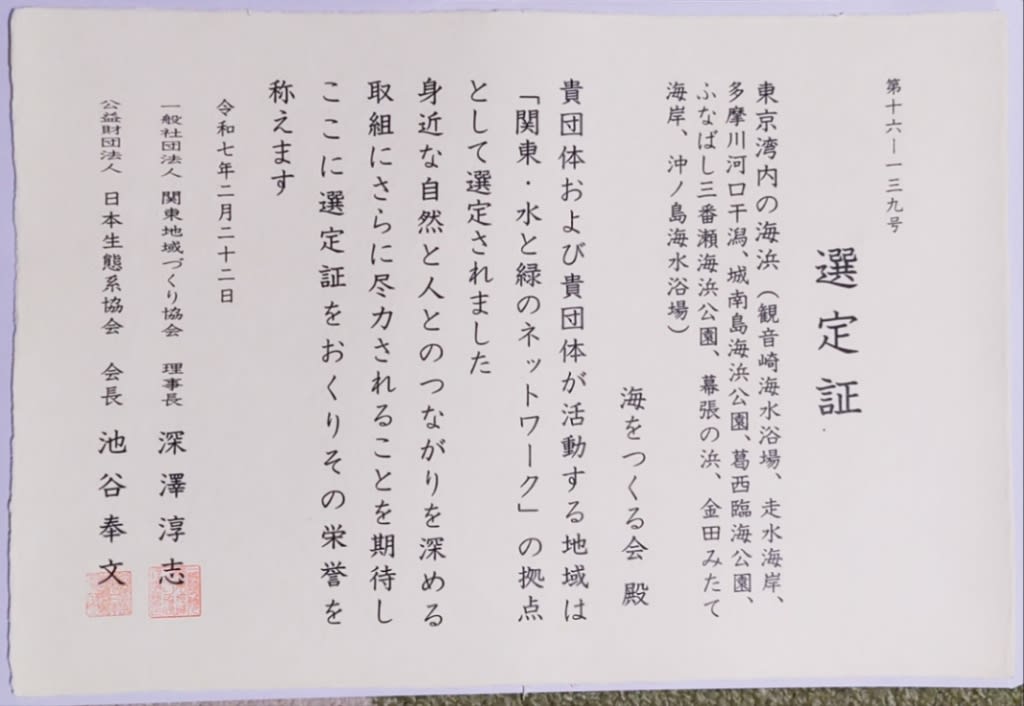 第十六ー一三九号
選定証
東京湾内の海浜（観音崎海水浴場、走水海岸、
多摩川河口干潟、城南島海浜公園、葛西臨海公園、
ふなばし三番瀬海浜公園、幕張の浜、金田みたて
海岸、沖ノ島海水浴場）
海をつくる会 殿
貴団体および貴団体が活動する地域は
「関東・水と緑のネットワーク」の拠点
として選定されました
身近な自然と人とのつながりを深める
取組にさらに尽力されることを期待し
ここに選定証をおくりその栄誉を
称えます
令和七年二月二十二日
一般社団法人 関東地域づくり協会 理事長 深澤淳志
公益財団法人 日本生態系協会 会長 池谷奉文